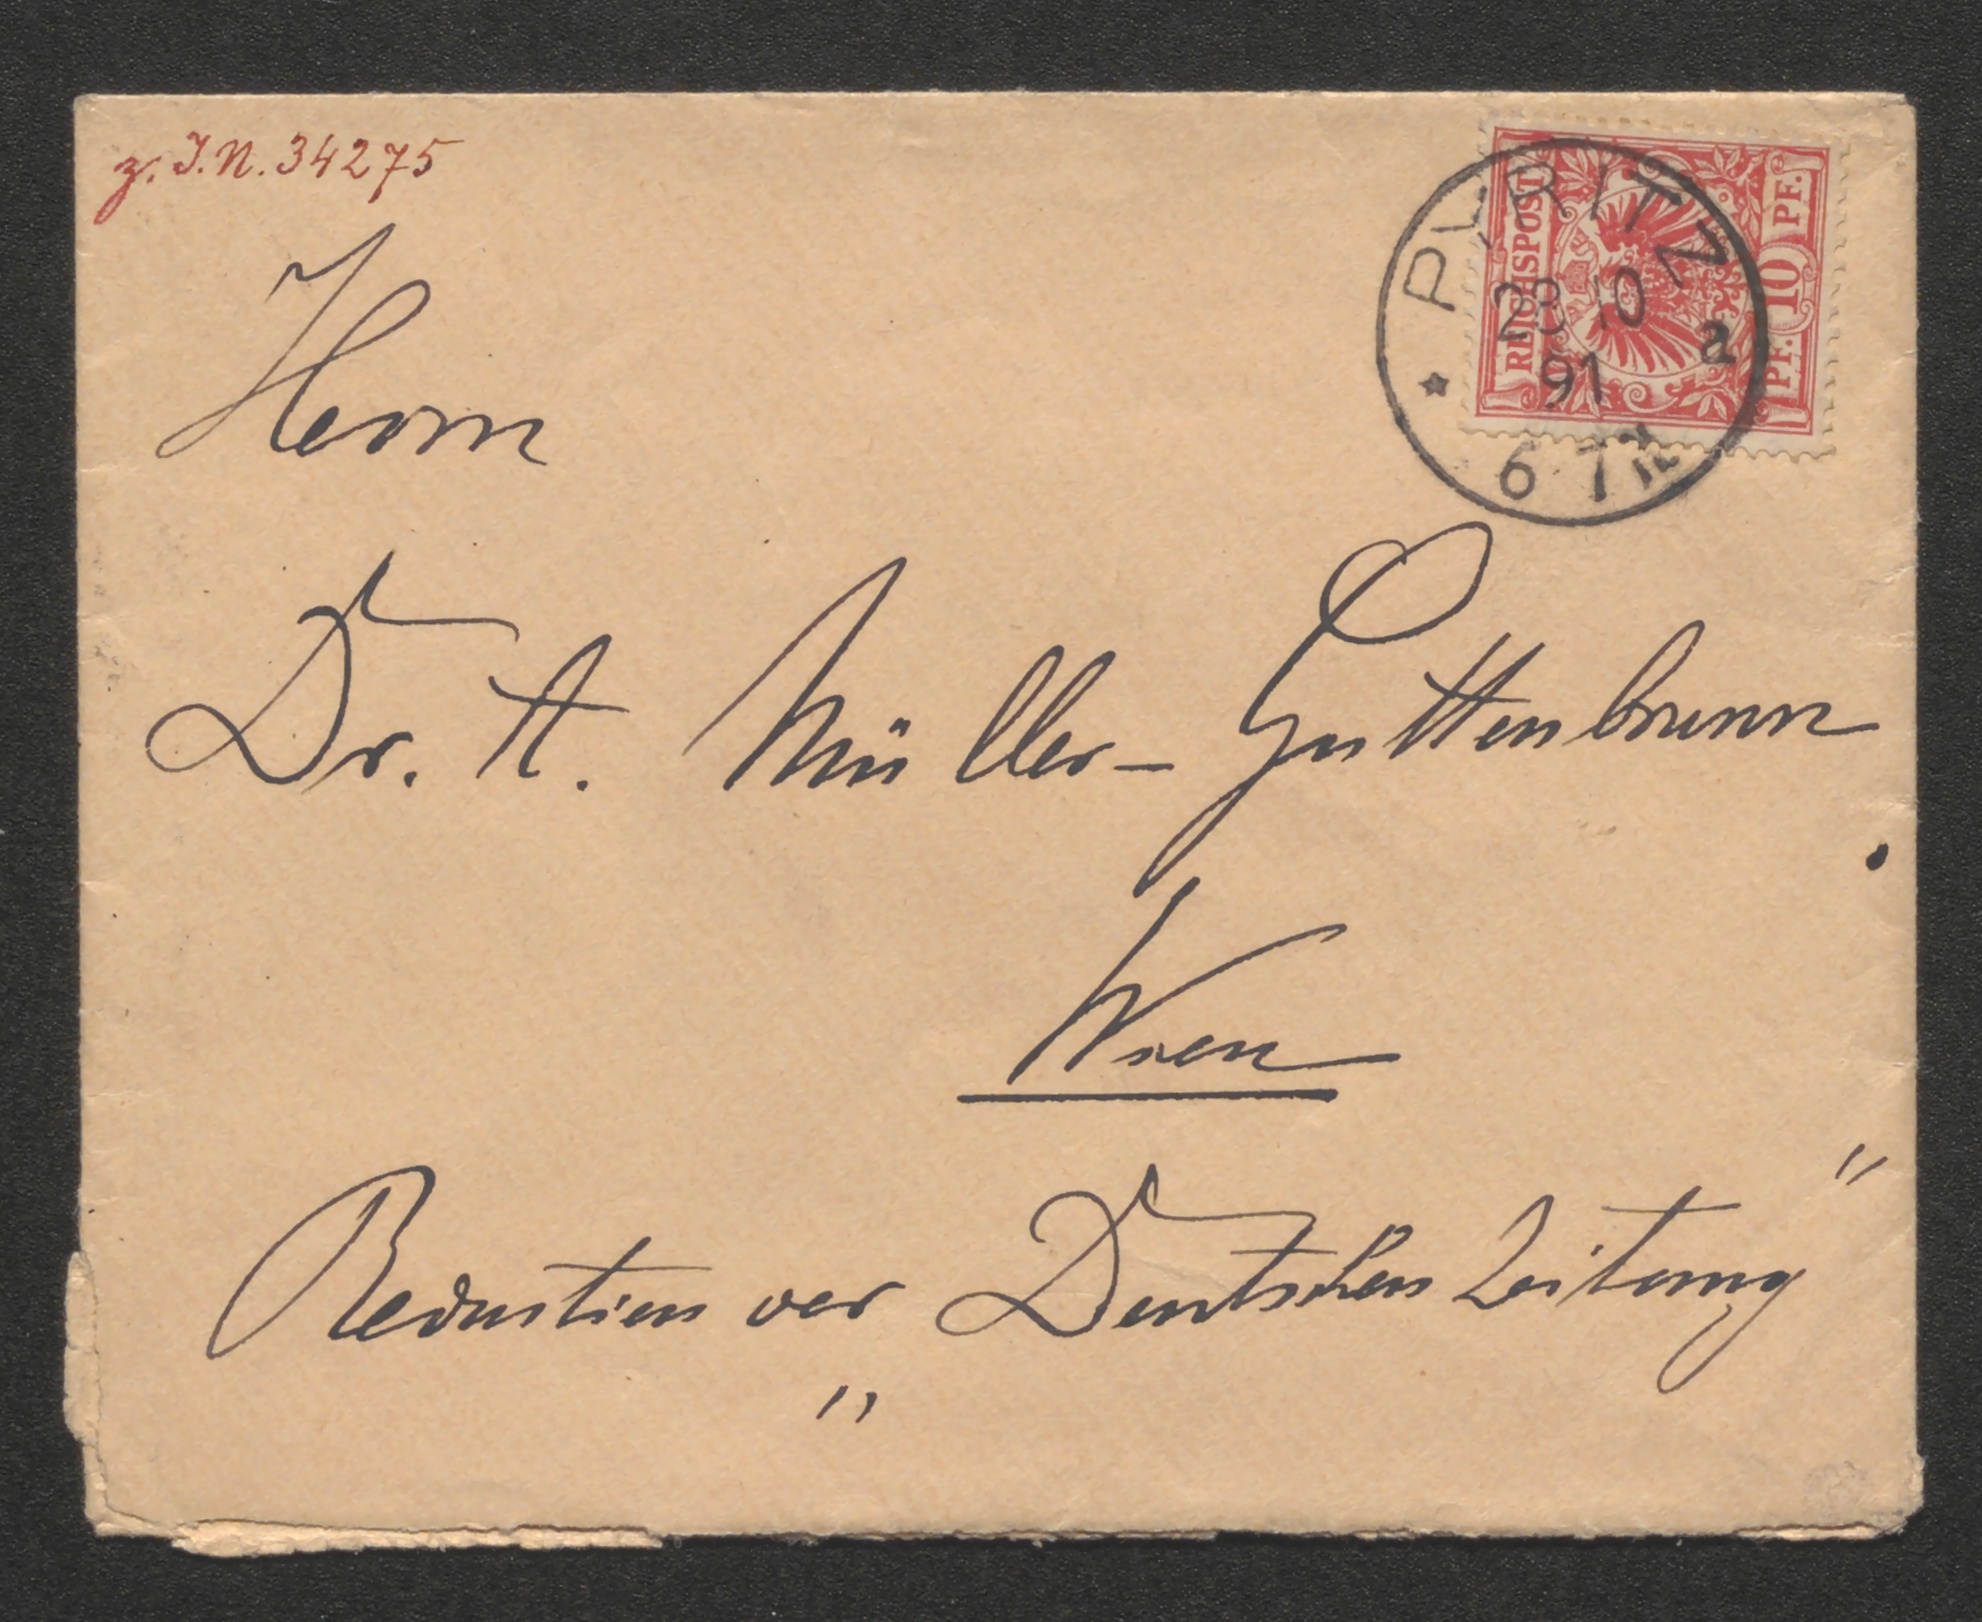 z. I.N. 34275
REICHSPOST
PF. 10 PF.
PYRITZ
23 10
91 a
6 7 N
Herrn
Dr. A. Müller-Guttenbrunn
Wien
Redaction der „Deutschen Zeitung“